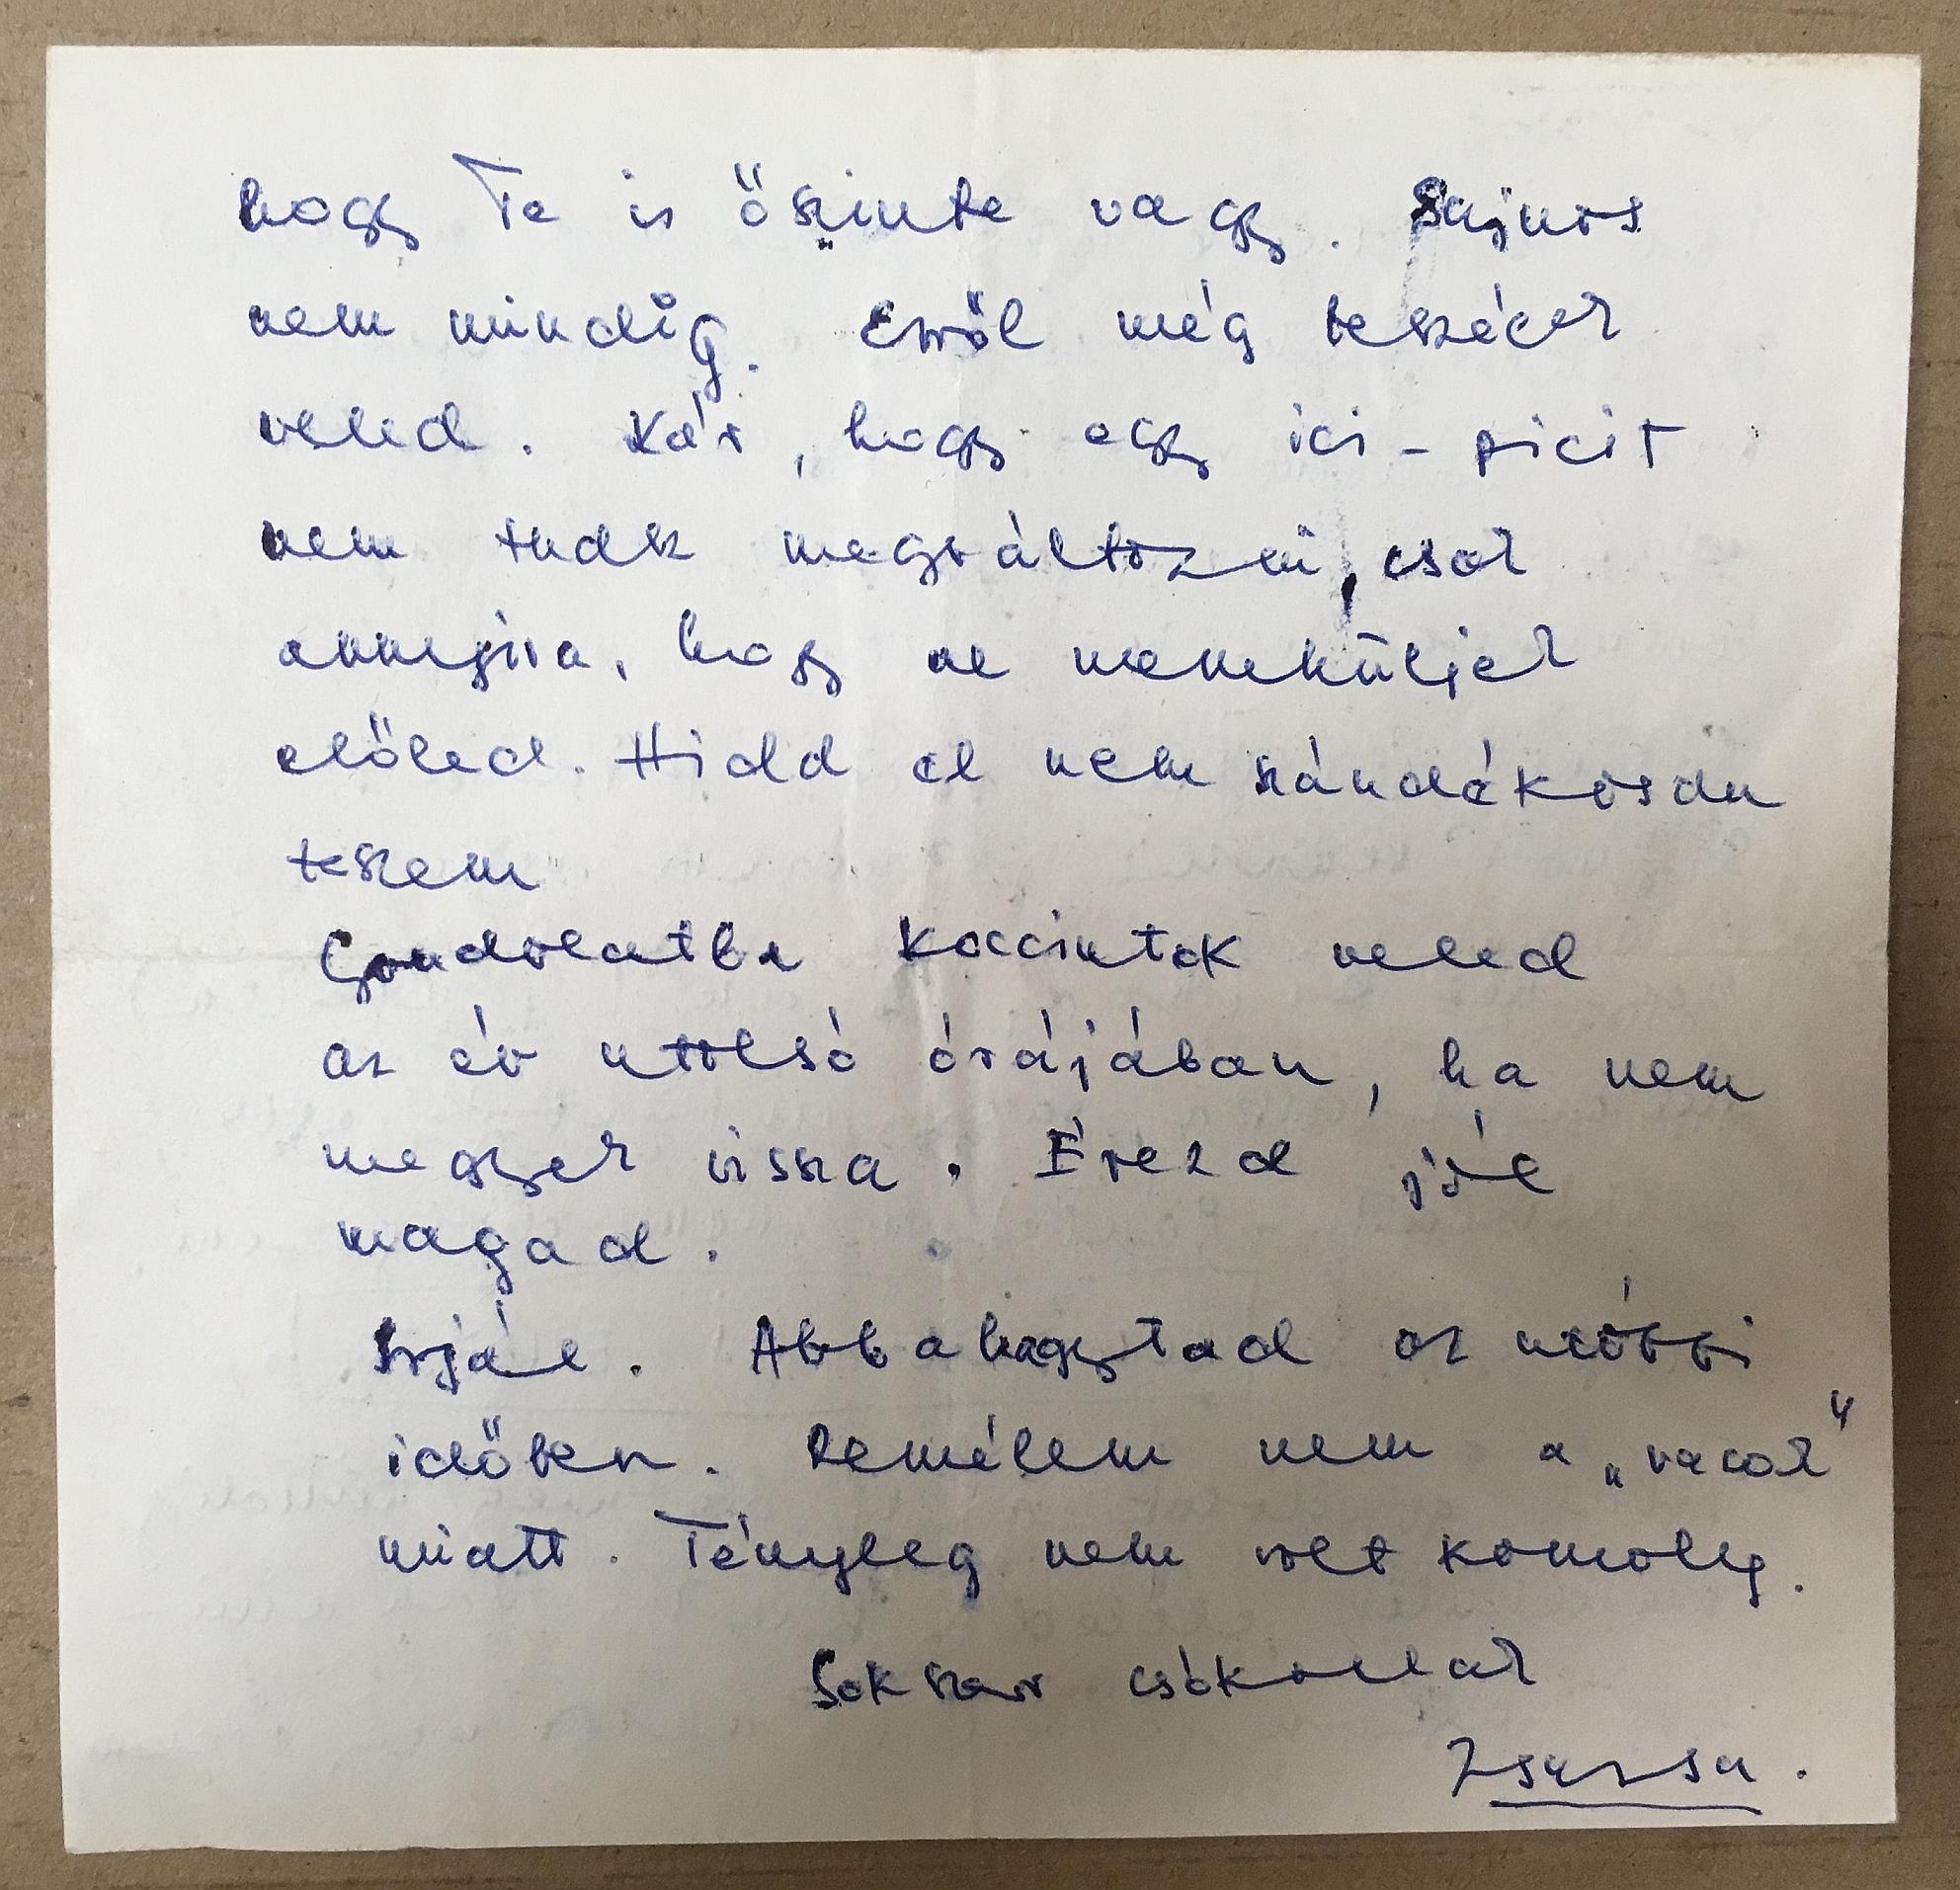 hogy Te is őszinte vagy. Sajnos
nem mindig. Erről még beszélek
veled. Kár, hogy egy ici-picit
nem tudk megváltozni, csak
annyira, hogy ne meneküljek
előled. Hidd el nem szándékosan
teszem
Gondolatba koccintok veled
az év utolsó órájában, ha nem
megyek vissza. Érezd jól
magad.
Irjál. Abbahagytad az utóbbi
időben. Remélem nem a „vacak"
miatt. Tényleg nem volt komoly.
Sokszor csókollak
Zsuzsa.